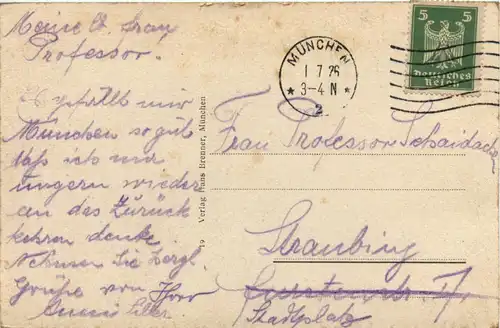 Meine l. Frau
Professor.
Es gefällt mir
München so gut
daß ich nur
ungern wieder
an das Zurück
kehren denke.
Nehmen Sie herzl.
Grüße von
MÜNCHEN
1 7 26
* 3-4 N *
2
5 5
Deutsches
Reich
Frau Professor
Straubing
Stadtplatz
19 Verlag Hans Brenner, München